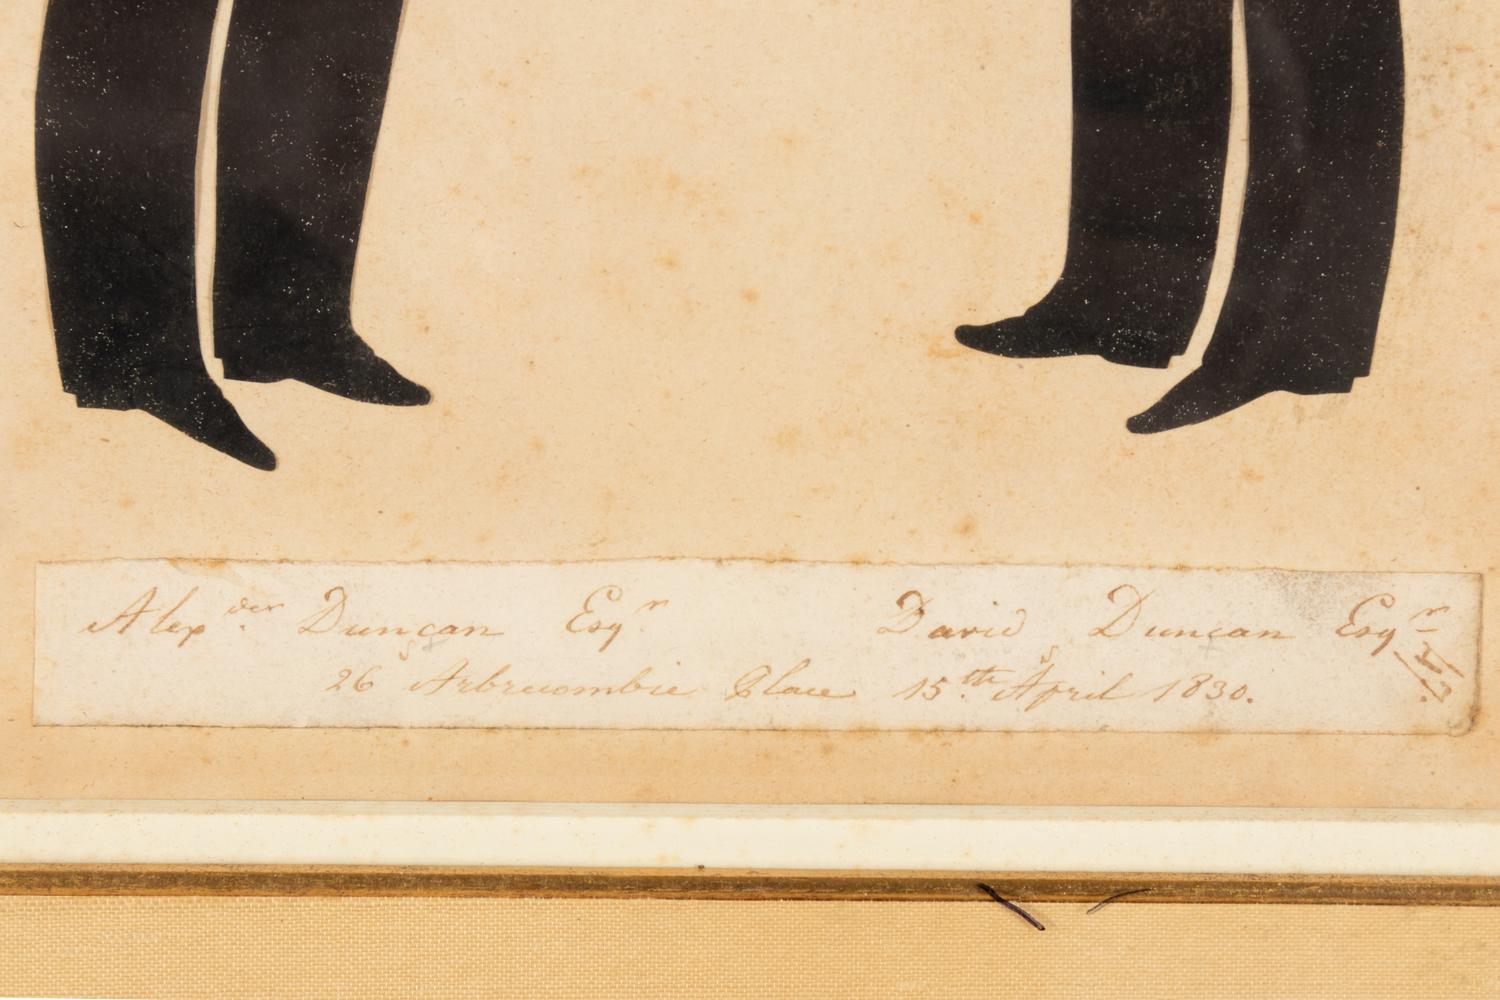 Alexder Duncan Esqr David Duncan Esqr
26 Arbrecombie Place 15th April 1830.